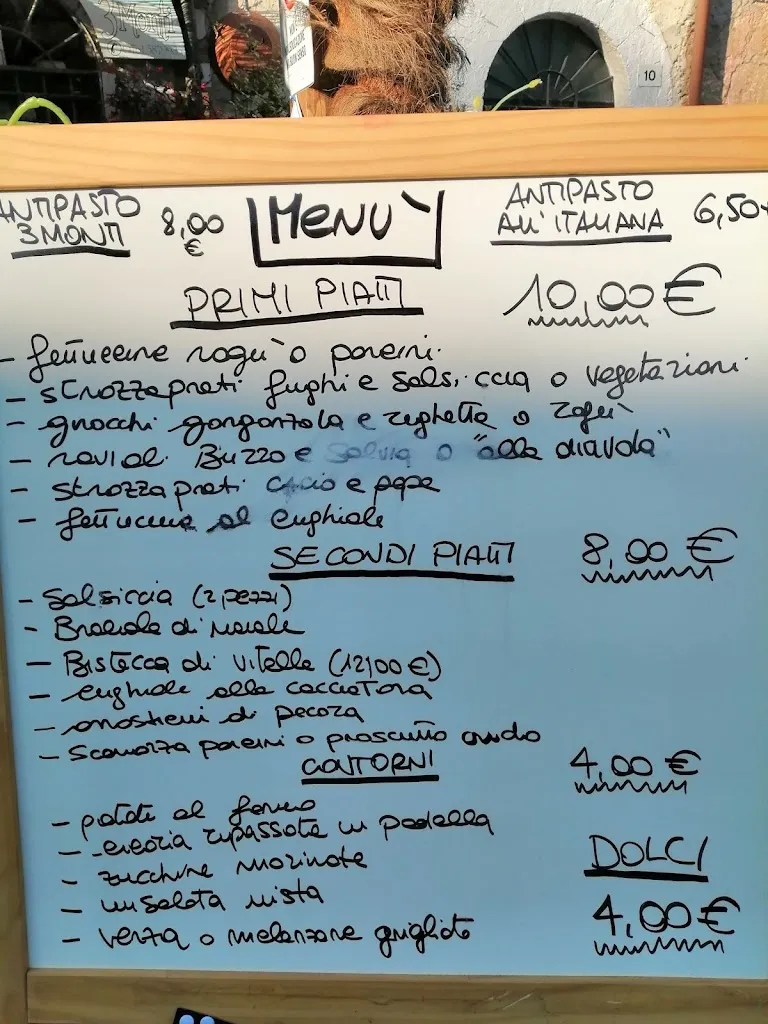 ANTIPASTO 3MONTI 8,00 €
MENÙ
ANTIPASTO ALL'ITALIANA 6,50
PRIMI PIATTI 10,00 €
- fettuccine ragù o porcini
- strozzapreti funghi e salsiccia o vegetariani
- gnocchi gorgonzola e rughetta o ragù
- ravioli Buzzo e salvia o "alla diavola"
- strozzapreti cacio e pepe
- fettuccine al cinghiale
SECONDI PIATTI 8,00 €
- Salsiccia (2 pezzi)
- Braciola di maiale
- Bistecca di vitella (12,00 €)
- cinghiale alla cacciatora
- arrosticini di pecora
- Scamorza porcini o prosciutto crudo
CONTORNI 4,00 €
- patate al forno
- cicoria ripassata in padella
- zucchine marinate
- insalata mista
- verza o melanzane grigliate
DOLCI
4,00 €
10